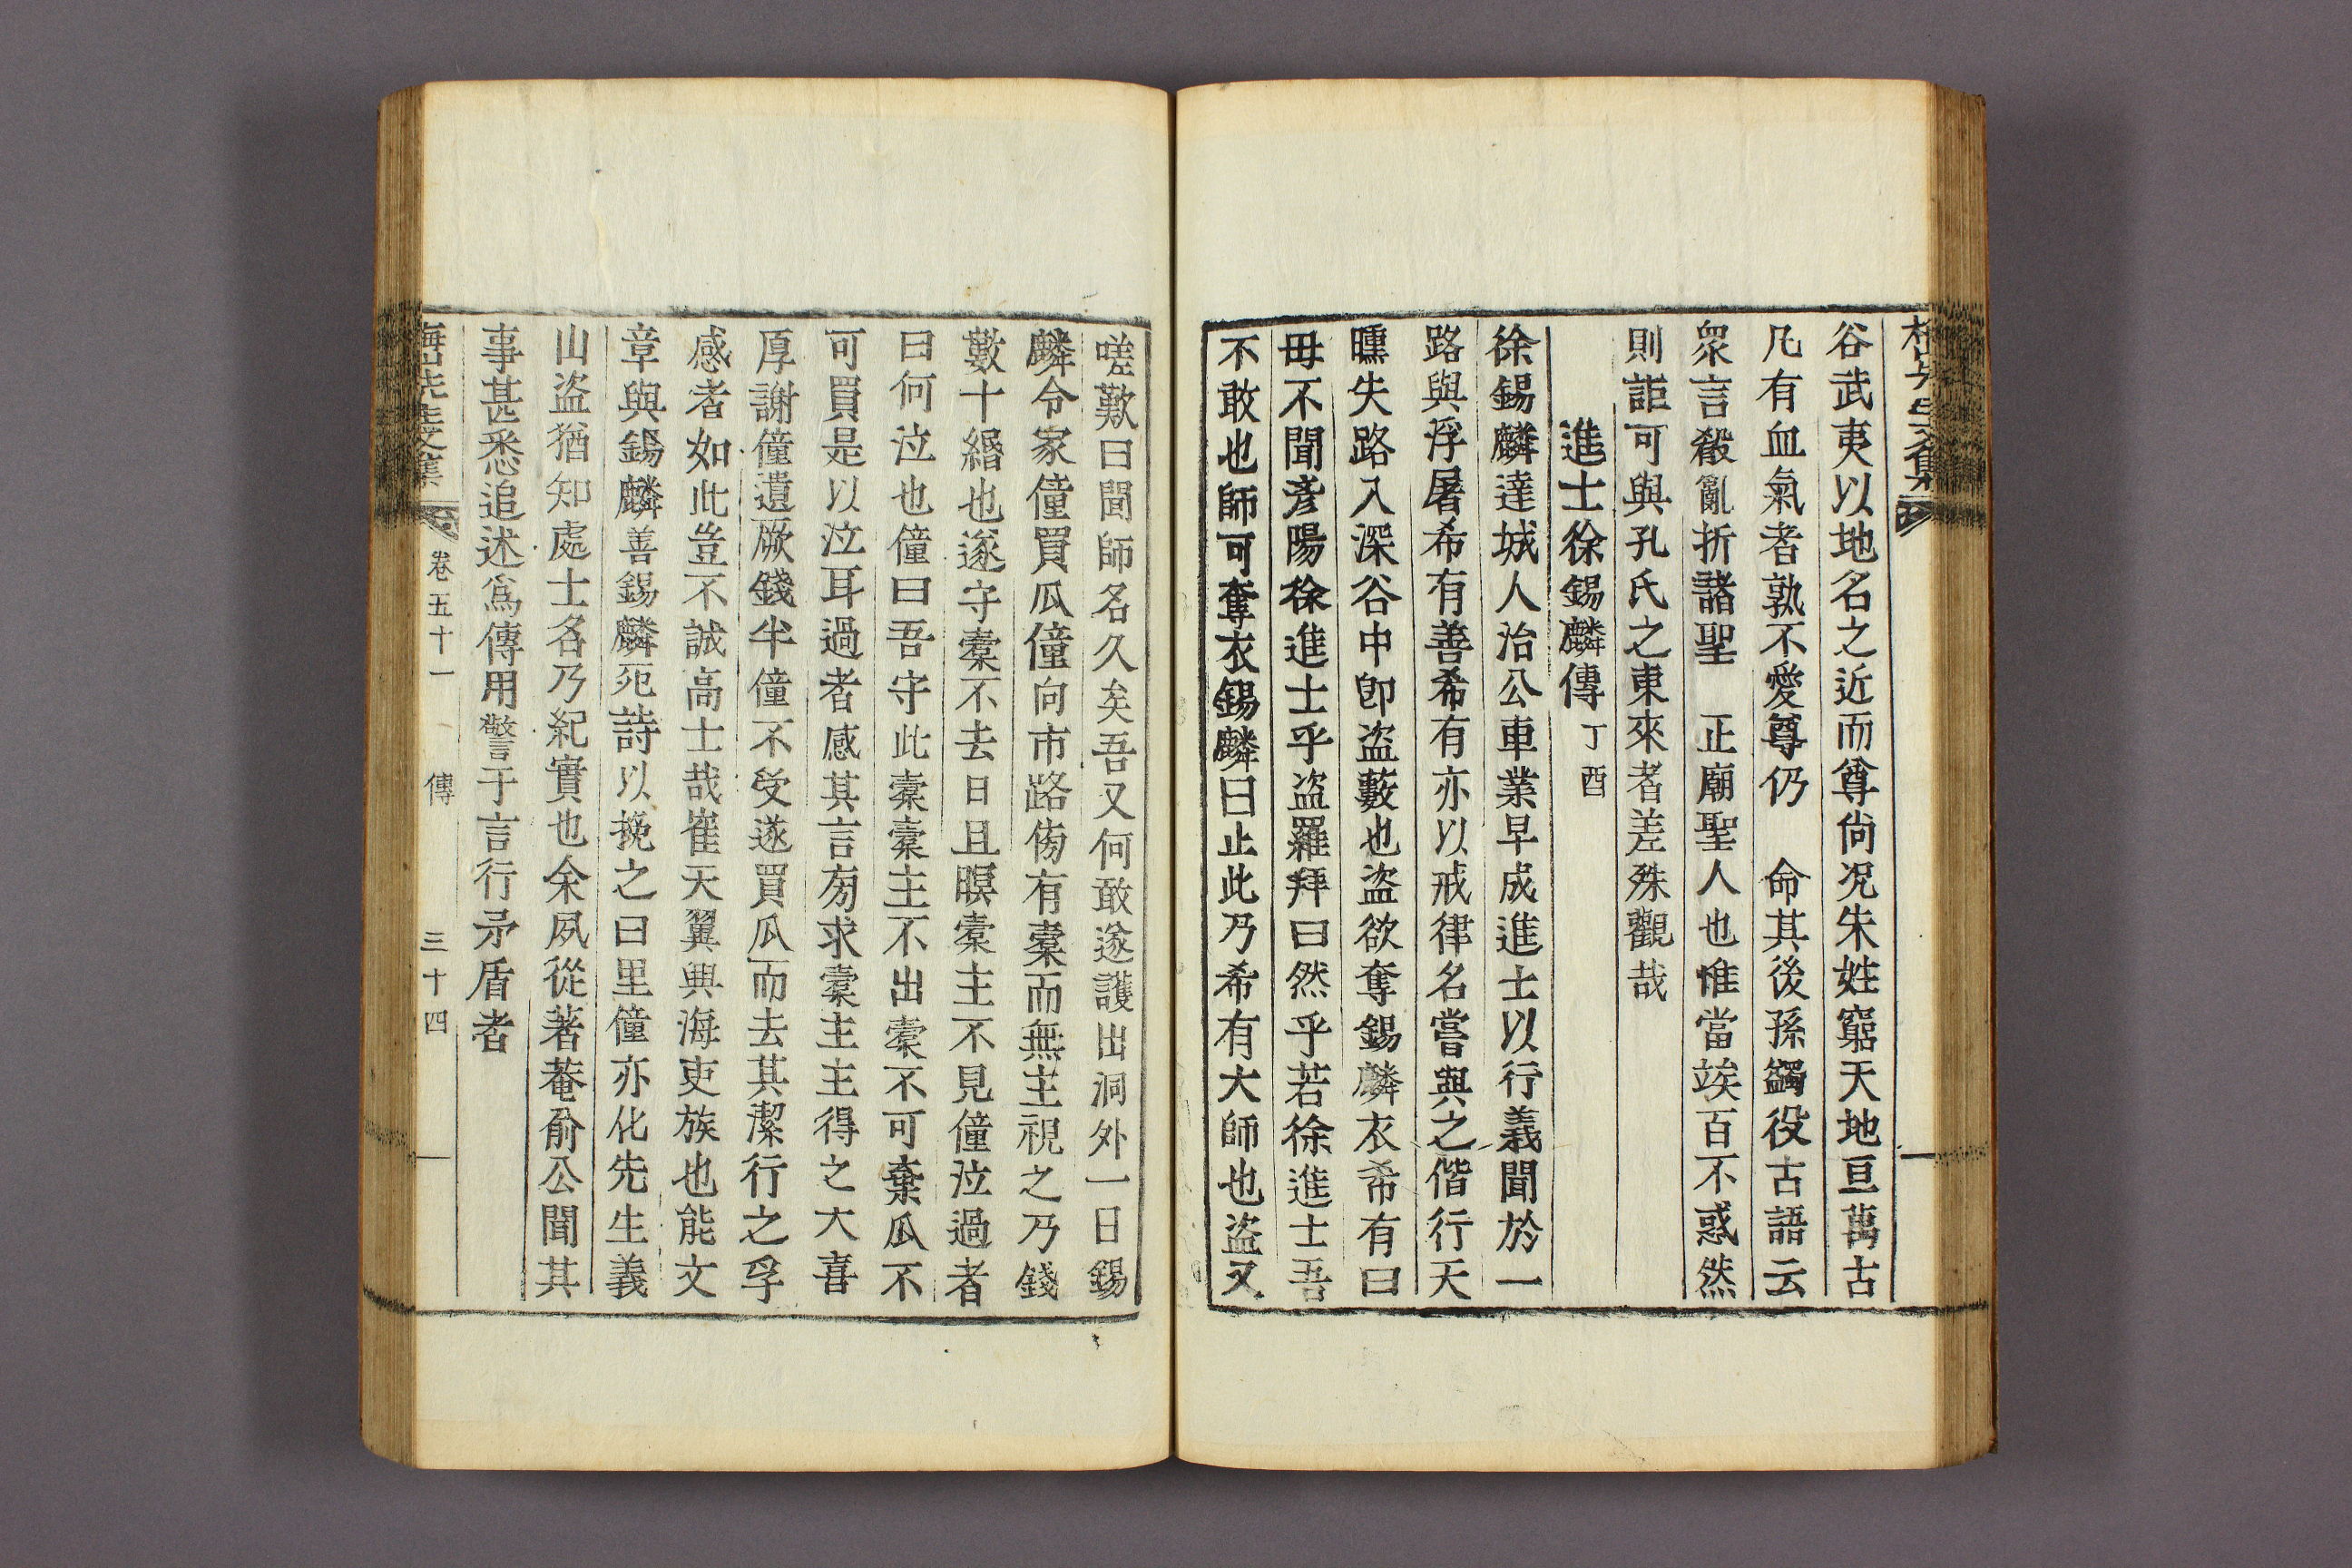 谷武夷以地名之近而尊尙况朱姓窮天地亘萬古
凡有血氣者孰不愛尊仍　命其後孫蠲役古語云
衆言殽亂折諸聖　正廟聖人也惟當竢百不惑然
則詎可與孔氏之東來者差殊觀哉
進士徐錫麟傳丁酉
徐錫麟達城人治公車業早成進士以行義聞於一
路與浮屠希有善希有亦以戒律名嘗與之偕行天
曛失路入深谷中卽盜藪也盜欲奪錫麟衣希有曰
毋不聞彥陽徐進士乎盜羅拜曰然乎若徐進士吾
不敢也師可奪衣錫麟曰止此乃希有大師也盜又
嗟歎曰聞師名久矣吾又何敢遂護出洞外一日錫
麟令家僮買瓜僮向市路傍有橐而無主視之乃錢
數十緡也遂守橐不去日且暝橐主不見僮泣過者
曰何泣也僮曰吾守此橐橐主不出橐不可棄瓜不
可買是以泣耳過者感其言旁求橐主主得之大喜
厚謝僮遺厥錢半僮不受遂買瓜而去其潔行之孚
感者如此豈不誠高士哉崔天翼興海吏族也能文
章與錫麟善錫麟死詩以挽之曰里僮亦化先生義
山盜猶知處士名乃紀實也余夙從著菴俞公聞其
事甚悉追述爲傳用警于言行矛盾者
梅山先生文集　卷五十一　傳　三十四